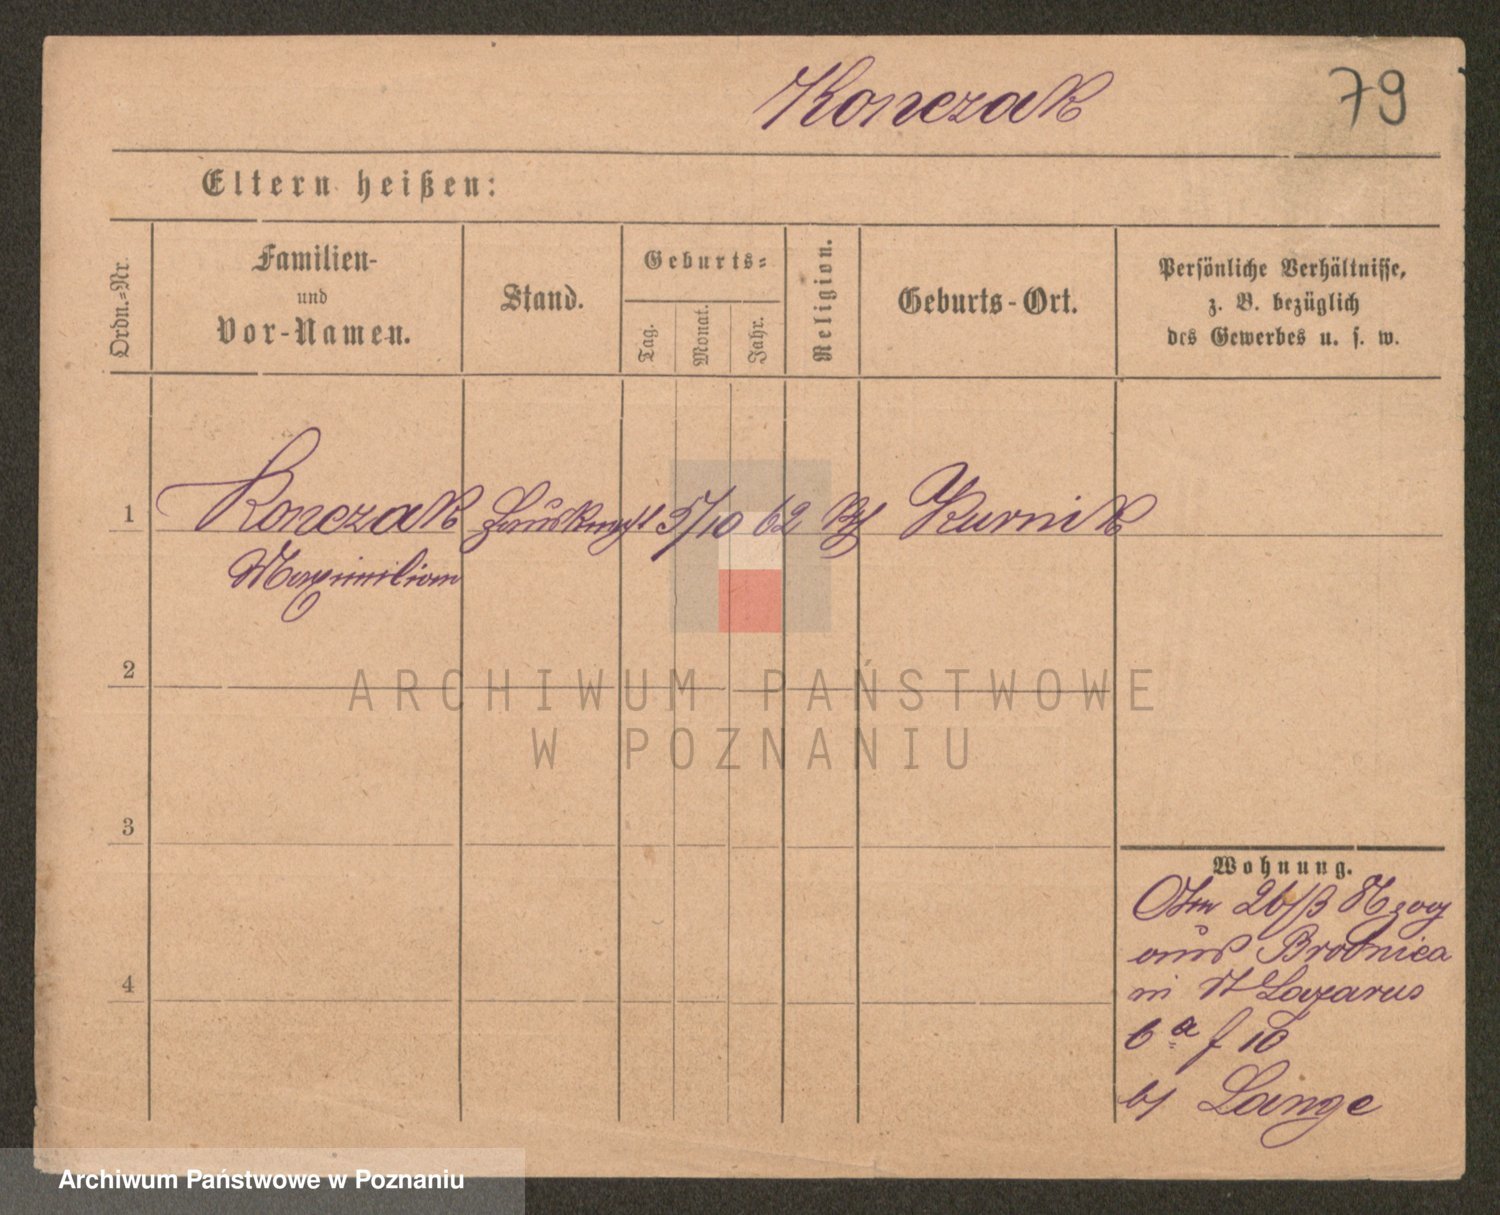 Konczak
79
Eltern heißen:
Ordn.=Nr.
Familien-
und
Vor-Namen.
Stand.
Geburts=
Tag.
Monat.
Jahr.
Religion.
Geburts-Ort.
Persönliche Verhältnisse,
z. B. bezüglich
des Gewerbes u. s. w.
1
Konczak Hausknecht 5/10 62 Kurnik
Maximilian
2
ARCHIWUM PAŃSTWOWE
W POZNANIU
3
Wohnung.
26/3
aus Brodnica
in St Lazarus
4
6 a f 10
b/ Lange
Archiwum Państwowe w Poznaniu